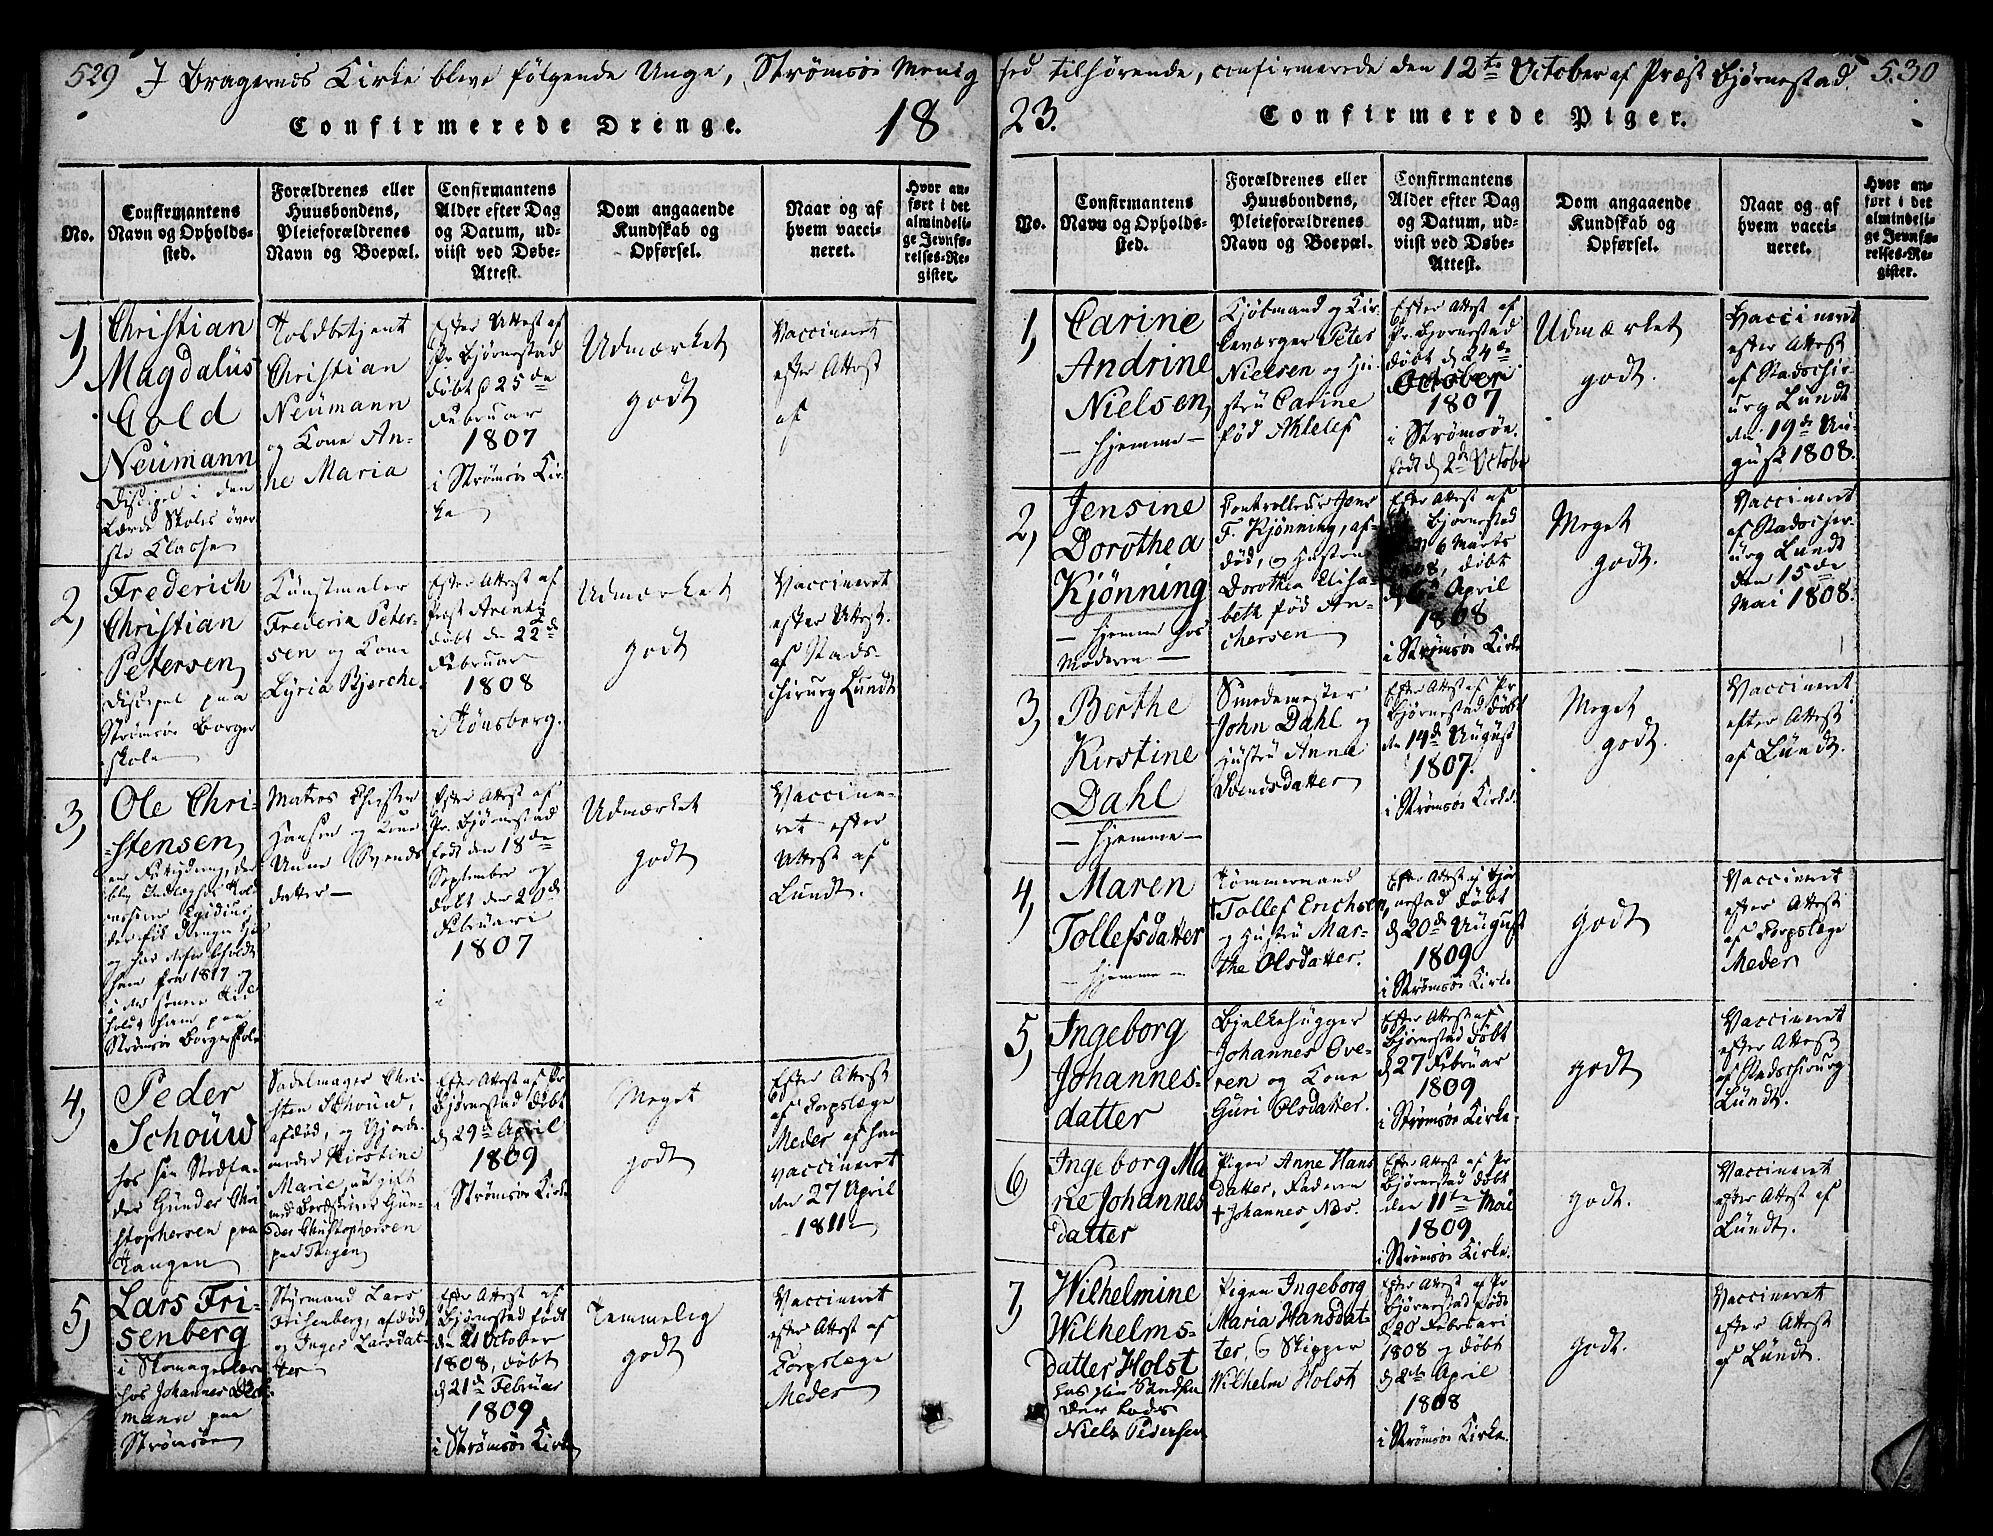 529 I Bragernes Kirke bleve følgende Unge, Strømsøe Menig
hed tilhørende, confirmerede den 12te October af Præst Bjørnestad. 530
Confirmerede Drenge. 18
23. Confirmerede Piger.
No.
Confirmantens
Navn og Opholds-
sted.
Forældrenes eller
Huusbondens,
Pleieforældrenes
Navn og Boepæl.
Confirmantens
Alder efter Dag
og Datum, ud-
viist ved Døbe-
Attest.
Dom angaaende
Kundskab og
Opførsel.
Naar og af
hvem vacci-
neret.
Hvor an-
ført i det
almindeli-
ge Jevnfø-
relses-Re-
gister.
1,
Christian
Magdalus
Cold
Neumann
Discipel i den
Lærde Skoles øver
ste Classe
Toldbetjent
Christian
Neumann
og Kone An-
ne Maria
Efter Attest af
Pr. Bjørnestad
døbt d 25de
Februar
1807
i Strømsøe Kir-
ke
Udmærket
godt
Vaccineret
efter Attest
af
2,
Frederich
Christian
Petersen
Discipel paa
Strømsøe Borger
skole
Kunstmaler
Frederik Peter-
sen og Kone
Lyria Bjerche.
Efter Attest af
Præst Arentz
døbt den 22de
Februar
1808
i Tønsberg.
Udmærket
godt
Vaccineret
efter Attest.
af Stads-
chirurg Lundt
3,
Ole Chri-
stensen,
Matros Christen
Hansen og Kone
Anne Svends
datter
Efter Attest af
Pr. Bjørnestad
født den 18de
September og
døbt den 20de
Februari
1807
i
Udmærket
godt
Vaccine-
ret efter
Attest af
Lundt.
ham fra 1817 og
holdt ham paa
Strømsøe Borgerskole
4,
Peder
Schouw
hos sin Stedfa-
der Gunder Chri
stophersen paa
Tangen
Sadelmager Chri-
sten Schouw,
afdød, og Gjorde-
moder Kirstine
Marie, nu gift
med Bordskriver Gun-
der Christophersen
paa Tangen
Efter Attest af Pr
Bjørnestad døbt
d 29de April
1809
i Strømsøe Kirke
Meget
godt
Efter Attest
af Corpslæge
Meder af ham
vaccineret
den 27 April
1811
5,
Lars Fri-
senberg
i Skomagerlære
hos Johannes
mann paa
Strømsøe
Styrmand Lars
Frisenberg, afdød
og Inger Larsdat-
ter
Efter Attest af
Bjørnestad født
den 21 October
1808, døbt
d 21de Februar
1809
i Strømsøe Kirke
Temmelig
godt
Vaccineret
efter Attest af
Corpslæge
Meder
No.
Confirmantens
Navn og Opholds-
sted.
Forældrenes eller
Huusbondens,
Pleieforældrenes
Navn og Boepæl.
Confirmantens
Alder efter Dag
og Datum, ud-
viist ved Døbe-
Attest.
Dom angaaende
Kundskab og
Opførsel.
Naar og af
hvem vacci-
neret.
Hvor an-
ført i det
almindeli-
ge Jevnfø-
relses-Re-
gister.
1,
Carine
Andrine
Nielsen,
- hjemme -
Kjøbmand og Kir-
keværger Peter
Nielsen og Hu-
stru Carine
fød Ahlefs
Efter Attest af
Pr. Bjørnestad
døbt d 24de
October
1807
i Strømsøe.
født d 2de Octobe
Udmærket
godt.
Vaccineret
efter Attest
af Stadschir-
urg Lundt
den 19de Au-
gust 1808.
2,
Jensine
Dorothea
Kjønning
- hjemme hos
Moderen -
Controlleur Jens
F. Kjønning, af-
død, og Hustru
Dorothea Elisa-
beth fød An-
chersen
Efter Attest af
Bjørnestad
6 Marts
1808, døbt
d 6te April
1808
i Strømsøe Kirke
Meget
godt.
Vaccineret
af Stadschir-
urg Lundt
den 15de
Mai 1808.
3,
Berthe
Kirstine
Dahl
- hjemme -
Smedemester
John Dahl og
Hustru Anne
Svendsdatter
Efter Attest af Pr
Bjørnestad døbt
den 14de August
1807.
i Strømsøe Kirke.
Meget
godt.
Vaccineret
efter Attest
af Lundt.
4,
Maren
Tollefsdatter
- hjemme -
Tømmermand
† Tollef Erichsen,
og Hustru Mar-
the Olsdatter.
Efter Attest af Bjør
nestad døbt
d 20de August
1809
i Strømsøe Kirke
godt
Vaccineret
efter Attest
af Corpslæge
Meder
5,
Ingeborg
Johannes-
datter
Bjelkehugger
Johannes Ove-
ren og Kone
Guri Olsdatter.
Efter Attest af
Bjørnestad døbt
d 27 Februar
1809
i Strømsøe Kirke.
godt
Vaccineret
efter Attest
af Stadschirurg
Lundt.
6,
Ingeborg Ma
rie Johannes
datter
Pigen Anne Hans
datter, Faderen
† Johannes Næs.
Efter Attest af Pr
Bjørnestad døbt
den 11te Mai
1809
i Strømsøe Kirke.
godt.
Vaccineret
efter Attest af
Lundt.
7,
Wilhelmine
Wilhelms-
datter Holst
Niels Pedersen
Pigen Ingeborg
Maria Hansdat-
ter, og Skipper
Wilhelm Holst
Efter Attest af Pr
Bjørnestad født
d 20 Februari
1808 og døbt
d 2de April
1808
i Strømsøe Kirke.
godt.
Vaccineret
efter Attest
af Lundt.